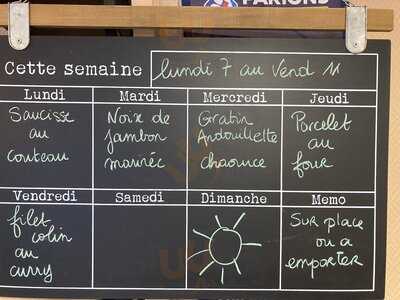 PARIONS
Cette semaine
lundi 7 au Vend 11
Lundi
Saucisse
au
couteau
Mardi
Noix de
jambon
Mercredi
Gratin
Andouillette
chaource
Jeudi
Porcelet
au
four
Vendredi
filet
colin
au
curry
Samedi
Dimanche
Memo
Sur place
ou a
emporter